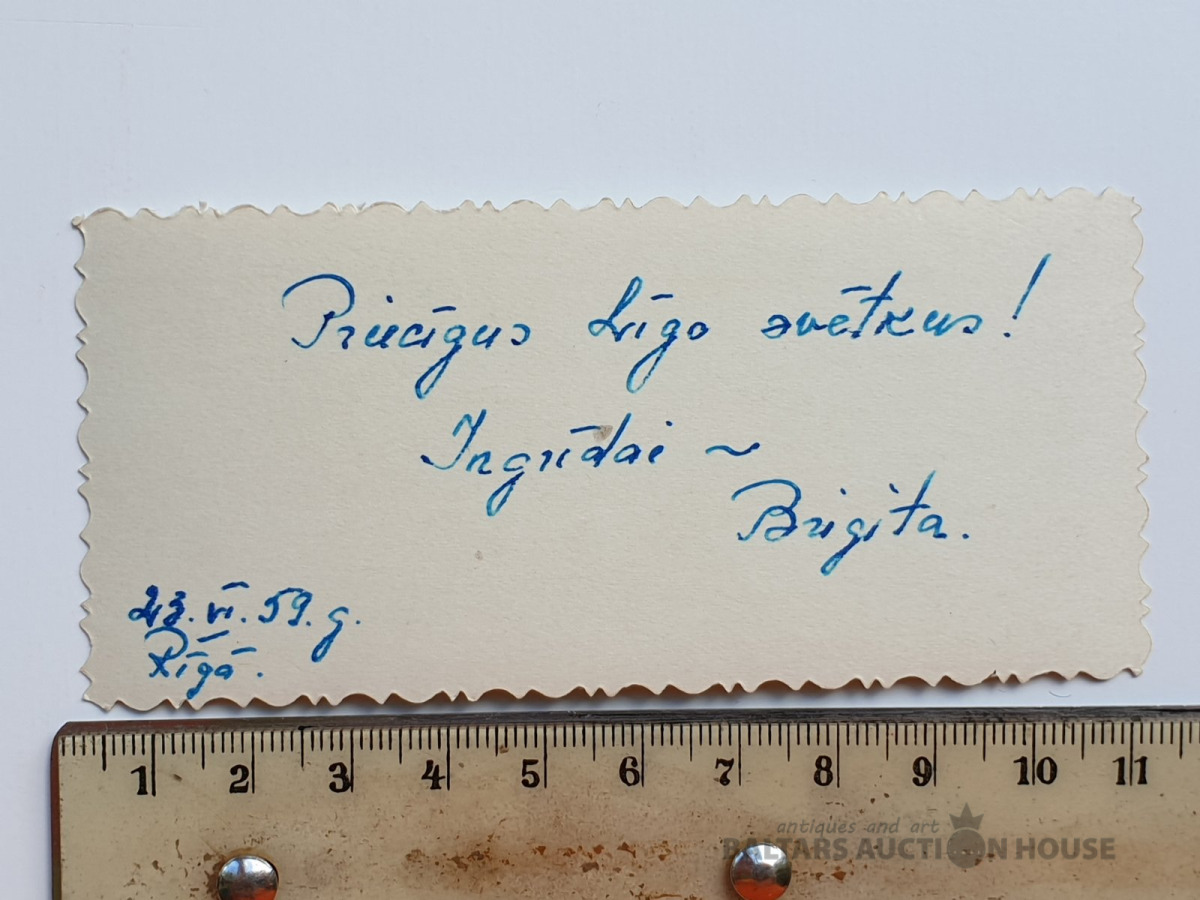 Priecīgus Līgo svētkus!
Ingrīdai ~
Brigita.
23. VI. 59. g.
Rīgā.
1 2 3 4 5 6 7 8 9 10 11
antiques and art
BALTARS AUCTION HOUSE